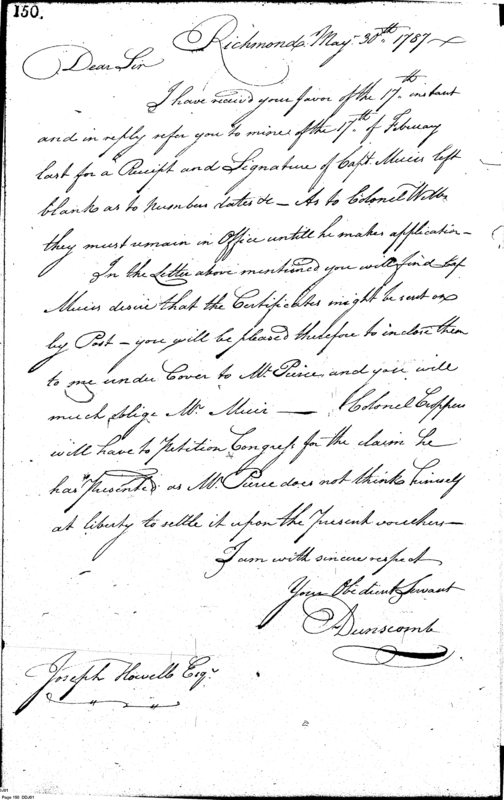 150.
Richmond May 30th 1787
Dear Sir
I have receivd your favor of the 17th instant
and in reply refer you to mine of the 17th of February
last for a Receipt and Signature of Capt. Muirs left
blank as to numbers dates &c — As to Colonel
they must remain in Office untill he makes application —
In the Letter above mentioned you will find Capt
Muirs desire that the Certificates might be sent on
by Post — you will be pleased therefore to inclose them
to me under Cover to Mr. Pierce and you will
much oblige Mr. Muir — Colonel Croppers
will have to Petition Congress for the claim he
has Presented as Mr. Pierce does not think himself
at liberty to settle it upon the Present vouchers —
I am with sincere respect
Your Obedient Servant
Dunscomb
Joseph Howell Esqr.
Page 150 DDJ01